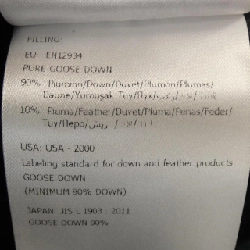 FILLING:
EU: EN12934
PURE GOOSE DOWN
90% Piumino/Down/Duvet/Plumon/Plumas/
Daune/Yumuşak Tüy/
10% Piuma/Feather/Duvet/Pluma/Penas/Feder/
Tuy/Перо/
USA: USA - 2000
Labeling standard for down and feather products
GOOSE DOWN
(MINIMUM 90% DOWN)
JAPAN: JIS L 1903 : 2011
GOOSE DOWN 90%